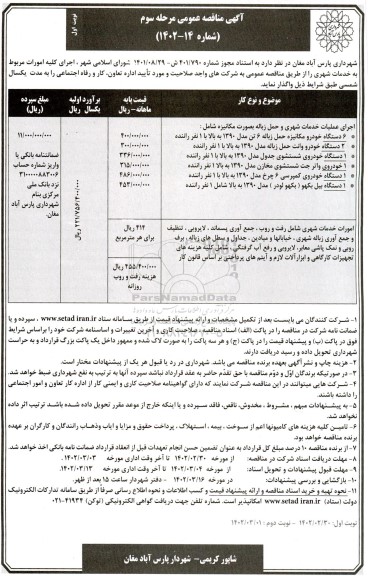 آگهی مناقصه عمومی مرحله سوم
(شماره ۱۴-۱۴۰۲)
نوبت اول
شهرداری پارس آباد مغان در نظر دارد به استناد مجوز شماره ۴۰۱/۷۹۰ ش- ۱۴۰۱/۰۸/۲۹ شورای اسلامی شهر ، اجرای کلیه امورات مربوط
به خدمات شهری را از طریق مناقصه عمومی به شرکت های واجد صلاحیت و مورد تأیید اداره تعاون، کار و رفاه اجتماعی را به مدت یکسال
شمسی طبق شرایط ذیل واگذار نماید.
موضوع و نوع کار
قیمت پایه ماهانه-ریال
برآورد اولیه یکسال ریال
مبلغ سپرده ریال
اجرای عملیات خدمات شهری و حمل زباله بصورت مکانیزه شامل :
۶ دستگاه خودرو مکانیزه حمل زباله ۶ تن مدل ۱۳۹۰ به بالا با ۱ نفر راننده
۴۰۰/۰۰۰/۰۰۰
۲ دستگاه خودرو وانت حمل زباله مدل ۱۳۹۰ به بالا با ۱ نفر راننده
۳۰۰/۰۰۰/۰۰۰
۱ دستگاه خودروی شستشوی جدول مدل ۱۳۹۰ به بالا با ۱ نفر راننده
۳۳۶/۰۰۰/۰۰۰
۱ خودروی واتر جت شستشوی مخازن مدل ۱۳۹۰ به بالا با ۱ نفر راننده
۳۱۵/۰۰۰/۰۰۰
۱ دستگاه خودروی کمپرسی ۶ چرخ مدل ۱۳۹۰ به بالا با ۱ نفر راننده
۲۸۶/۰۰۰/۰۰۰
۱ دستگاه بیل بکهو ( بکهو لودر ) مدل ۱۳۹۰ به بالا شامل ۱ نفر راننده
۴۵۳/۰۰۰/۰۰۰
۱۱/۰۰۰/۰۰۰/۰۰۰
ضمانتنامه بانکی یا
واریز شماره حساب
۳۱۰۰۰۰۰۸۸۳۰۰۶
نزد بانک ملی
مرکزی بنام
شهرداری پارس آباد
مغان.
امورات خدمات شهری شامل رفت و روب ، جمع آوری پسماند ، لایروبی ، تنظیف
و جمع آوری زباله شهری ، خیابانها و میادین ، جداول و سطل های زباله ، برف
روبی و نمک پاشی معابر، لایروبی و رفع آب گرفتگی ، شامل کلیه هزینه های
تجهیزات کارگاهی و ابزارآلات لازم و آیتم های پرداختی بر اساس قانون کار
۴۱۴ ریال
برای هر مترمربع
۲۵۵/۴۰۰/۰۰۰ ریال
هزینه رفت و روب
روزانه
ParsNamadData
۱- شرکت کنندگان می بایست بعد از تکمیل مشخصات و ارائه پیشنهاد قیمت از طریق سامانه ستاد www.setad iran.ir ، سپرده و یا
ضمانت نامه شرکت در مناقصه را در پاکت (الف) اسناد مناقصه ، صلاحیت کاری و آخرین تغییرات و اساسنامه شرکت خود را براساس شرایط
فوق در پاکت (ب) و پیشنهاد قیمت را در پاکت (ج) و هر سه پاکت را به صورت لاک شده و ممهور داخل یک پاکت بزرگ قرارداد و به حراست
شهرداری تحویل داده و رسید دریافت دارند.
۲- هزینه چاپ و نشر آگهی بعهده برنده مناقصه می باشد. شهرداری در رد یا قبول هر یک از پیشنهادات مختار است.
۳- در صورتیکه برندگان اوّل و دوّم مناقصه با حق تقدّم حاضر به عقد قرارداد نباشد سپرده آنها به ترتیب به نفع شهرداری ضبط خواهد شد.
۴- شرکت هایی میتوانند در این مناقصه شرکت نمایند که دارای گواهینامه صلاحیت کاری و ایمنی کار از اداره کار تعاون و امور اجتماعی
را داشته باشند.
۵- به پیشنهادات مبهم ، مشروط ، مخدوش، ناقص، فاقد سپرده و یا اینکه خارج از موعد مقرر تحویل داده شده باشد ترتیب اثر داده
نخواهد شد.
۶- تامین کلیه هزینه های کامیونها اعم از سوخت ، بیمه ، استهلاک ، پرداخت حقوق و مزایا و ایاب وذهاب رانندگان و کارگران بر عهده
برنده مناقصه خواهد بود.
۷- از برنده مناقصه ۱۰ درصد مبلغ کل قرارداد به عنوان تضمین حسن انجام تعهدات قبل از انعقاد قرارداد ضمانت نامه بانکی اخذ خواهد شد.
۸- مهلت دریافت اسناد شرکت در مناقصه: از مورخه ۱۴۰۲/۰۲/۳۰ تا آخر وقت اداری مورخه ۱۴۰۲/۰۳/۰۳
۹- مهلت قبول پیشنهادات و تحویل اسناد: از مورخه ۱۴۰۲/۰۳/۰۴ تا آخر وقت اداری مورخه ۱۴۰۲/۰۳/۱۳
۱۰- بازگشایی و بررسی پیشنهادات: در مورخه ۱۴۰۲/۰۳/۱۶ - دفتر شهردار ساعت ۱۵ بعد از ظهر.
۱۱- نحوه تهیه و خرید اسناد مناقصه و ارائه پیشنهاد قیمت و کسب اطلاعات و نحوه اطلاع رسانی صرفاً از طریق سامانه تدارکات الکترونیک
دولت (ستاد) www.setad iran.ir امکانپذیر است. شماره تلفن جهت دریافت گواهی الکترونیکی (توکن) ۴۱۹۳۴-۰۲۱
نوبت اول: ۱۴۰۲/۰۲/۳۰ - نوبت دوم : ۱۴۰۲/۰۳/۰۱
شاپور کریمی- شهردار پارس آباد مغان